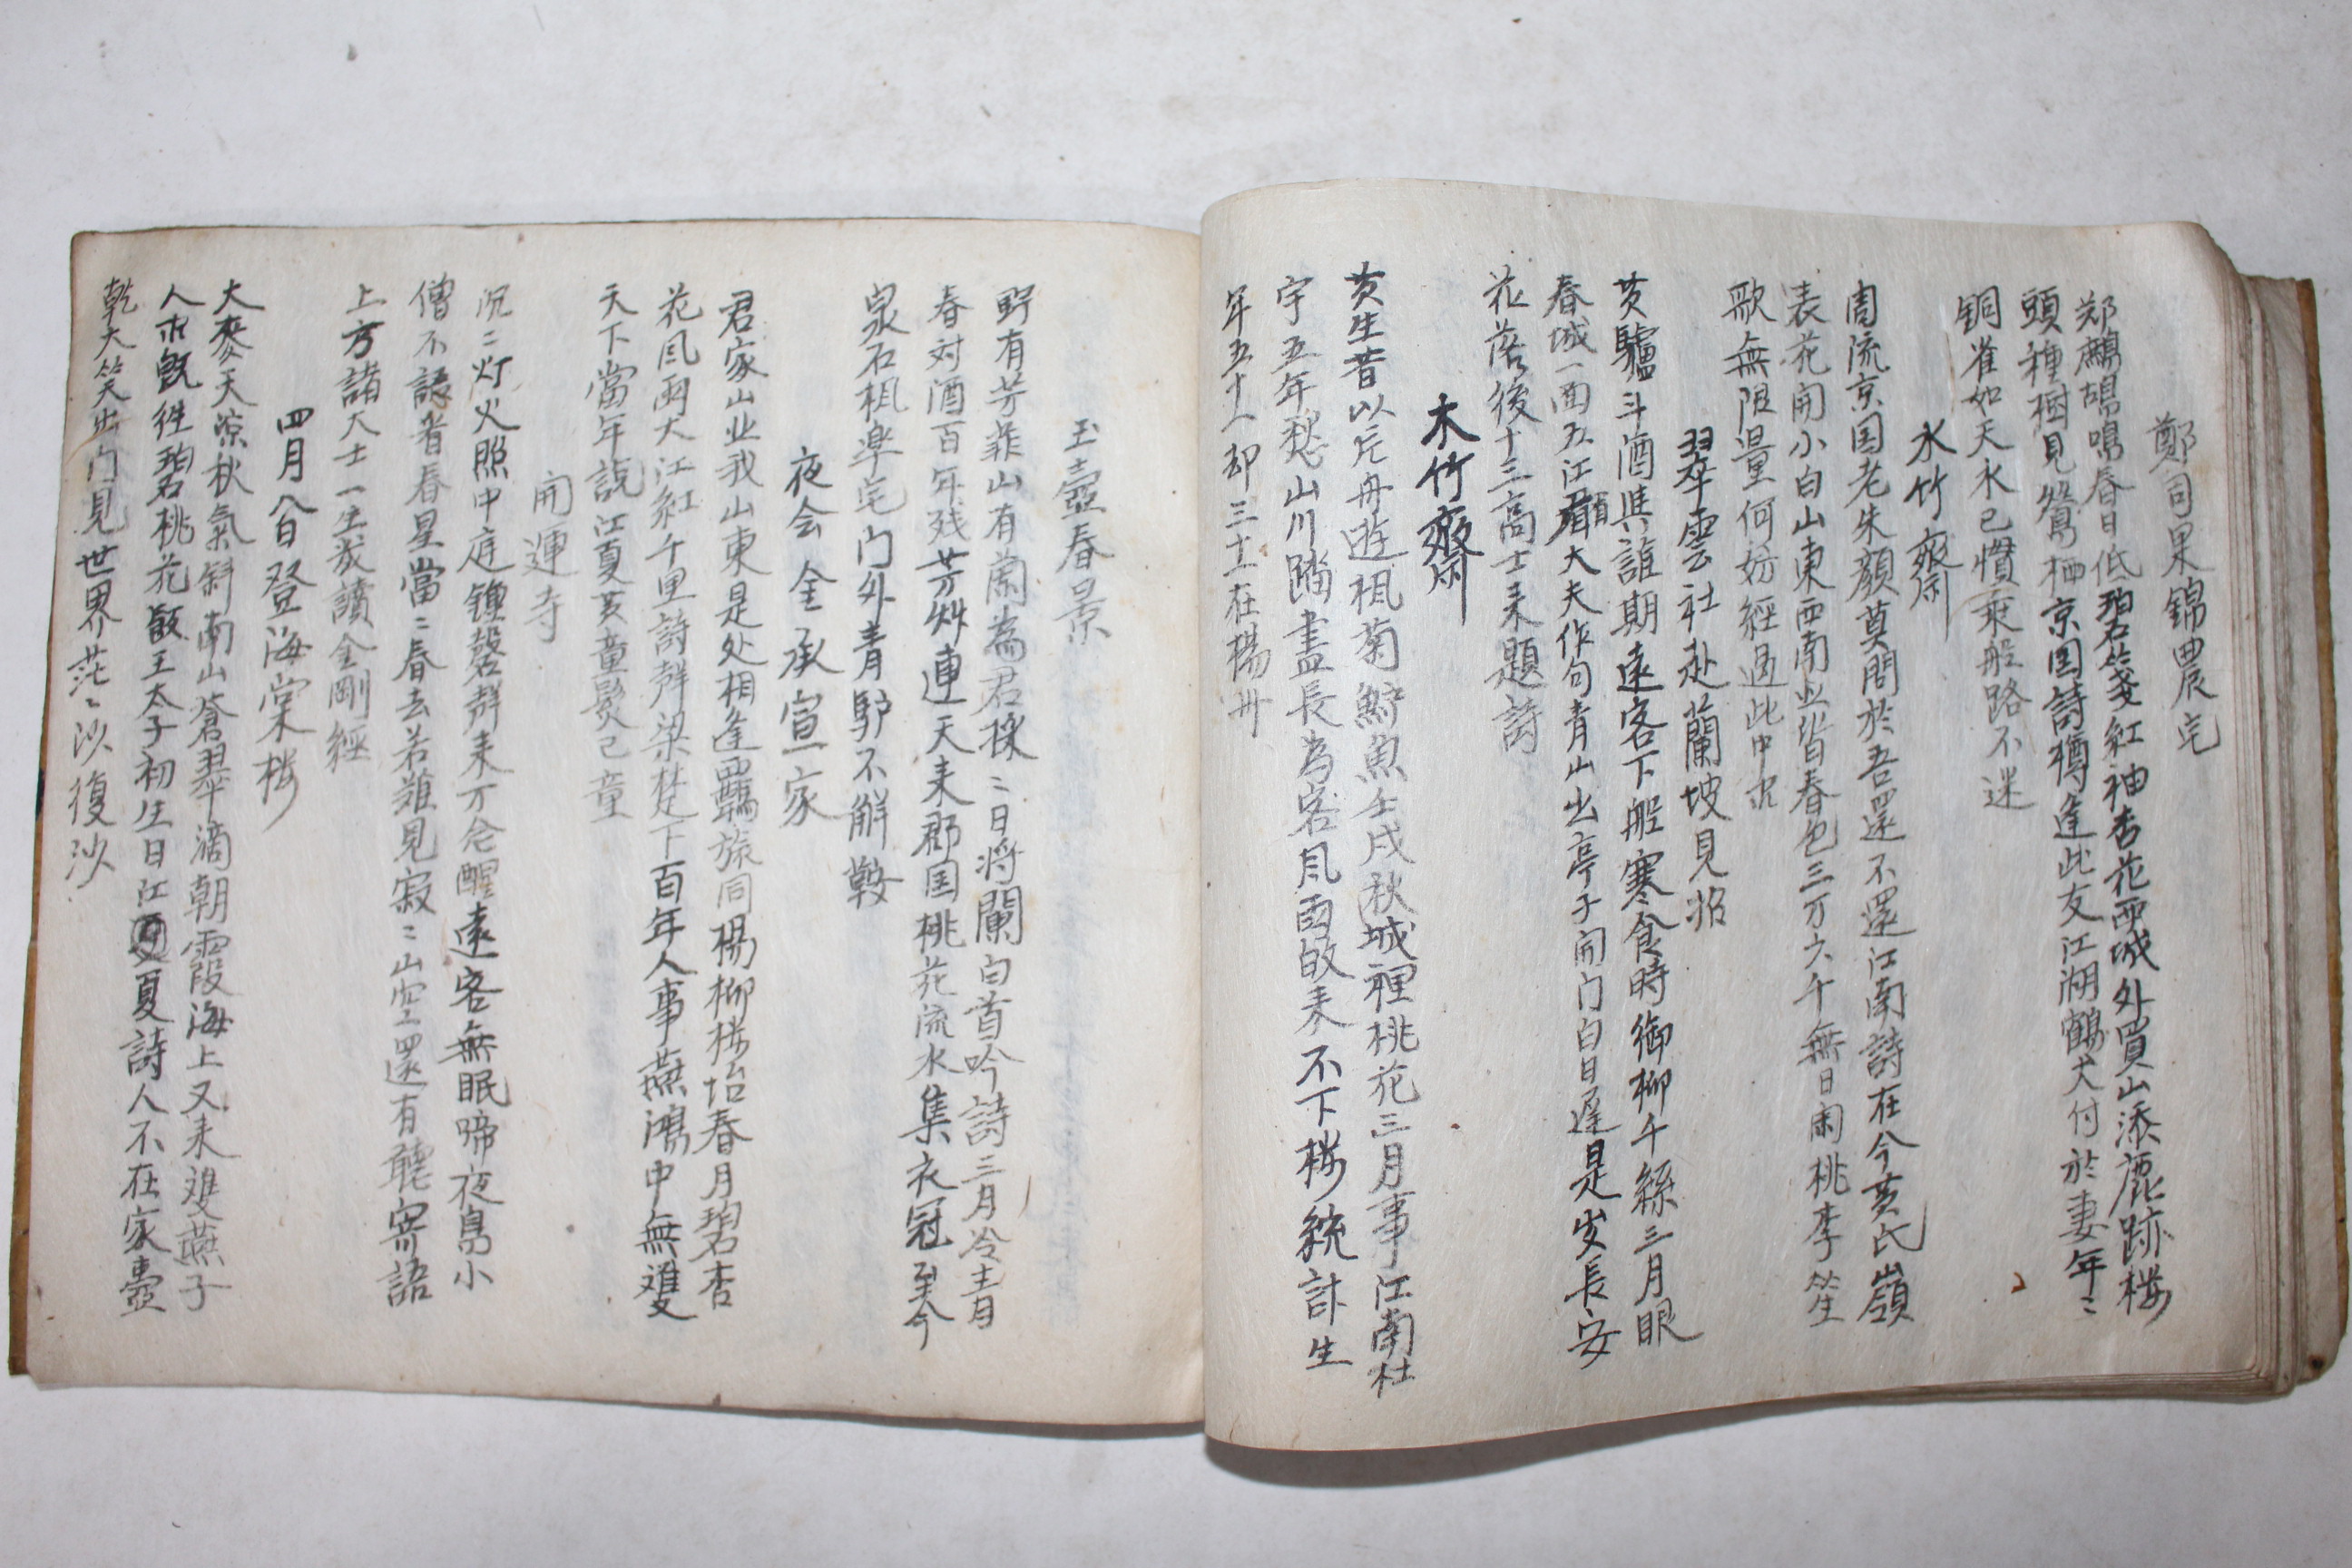 鄭司果錦農宅
郑鷓鴣鳴春日低碧笺紅袖杏花西城外買山添鹿跡楼
頭種樹見鴛栖京国詩樽逢此友江湖鶴犬付於妻年〻
铜雀如天水已慣乘船路不迷
水竹齋
周流京国老朱顔莫問於吾還不還江南詩在今黄氏嶺
表花開小白山東西南北皆春色三万六千無日闲桃李笙
歌無限量何妨經過此中
翠雲社赴蘭坡見招
黄驢斗酒與誰期遠客下船寒食時御柳千絲三月眼
春城一面五江眉大夫作句青山出亭子開门白日遅是岁長安
花落後十三高士来題詩
木竹齋
黄生昔以片舟遊楓菊鱸魚壬戌秋城裡桃花三月事江南杜
宇五年愁山川踏盡長為客風雨故来不下楼統計生
年五十一却三十在楊州
玉壺春景
野有芳菲山有蘭為君採〻日将闌白首吟詩三月冷青
春対酒百年残芳艸連天来郡国桃花流水集衣冠至今
泉石楓亭宅门外青驴不解鞍
夜会金承宣家
君家山北我山東是处相逢羈旅同楊柳楼坮春月碧杏
花風雨大江紅千里詩聲梁楚下百年人事燕鴻中無雙
天下當年説江夏黄童髮已童
開運寺
沉〻灯火照中庭鍾磬聲来万念醒遠客無眠啼夜鳥小
僧不語看春星當〻春去若難見寂〻山空還有聽寄語
上方諸大士一生我讀金剛經
四月八日登海棠楼
大麥天凉秋氣斜南山蒼翠滴朝霞海上又来雙燕子
人𠆸既徃碧桃花殿王太子初生日江夏詩人不在家壺
乾大笑出门見世界茫〻沙復沙